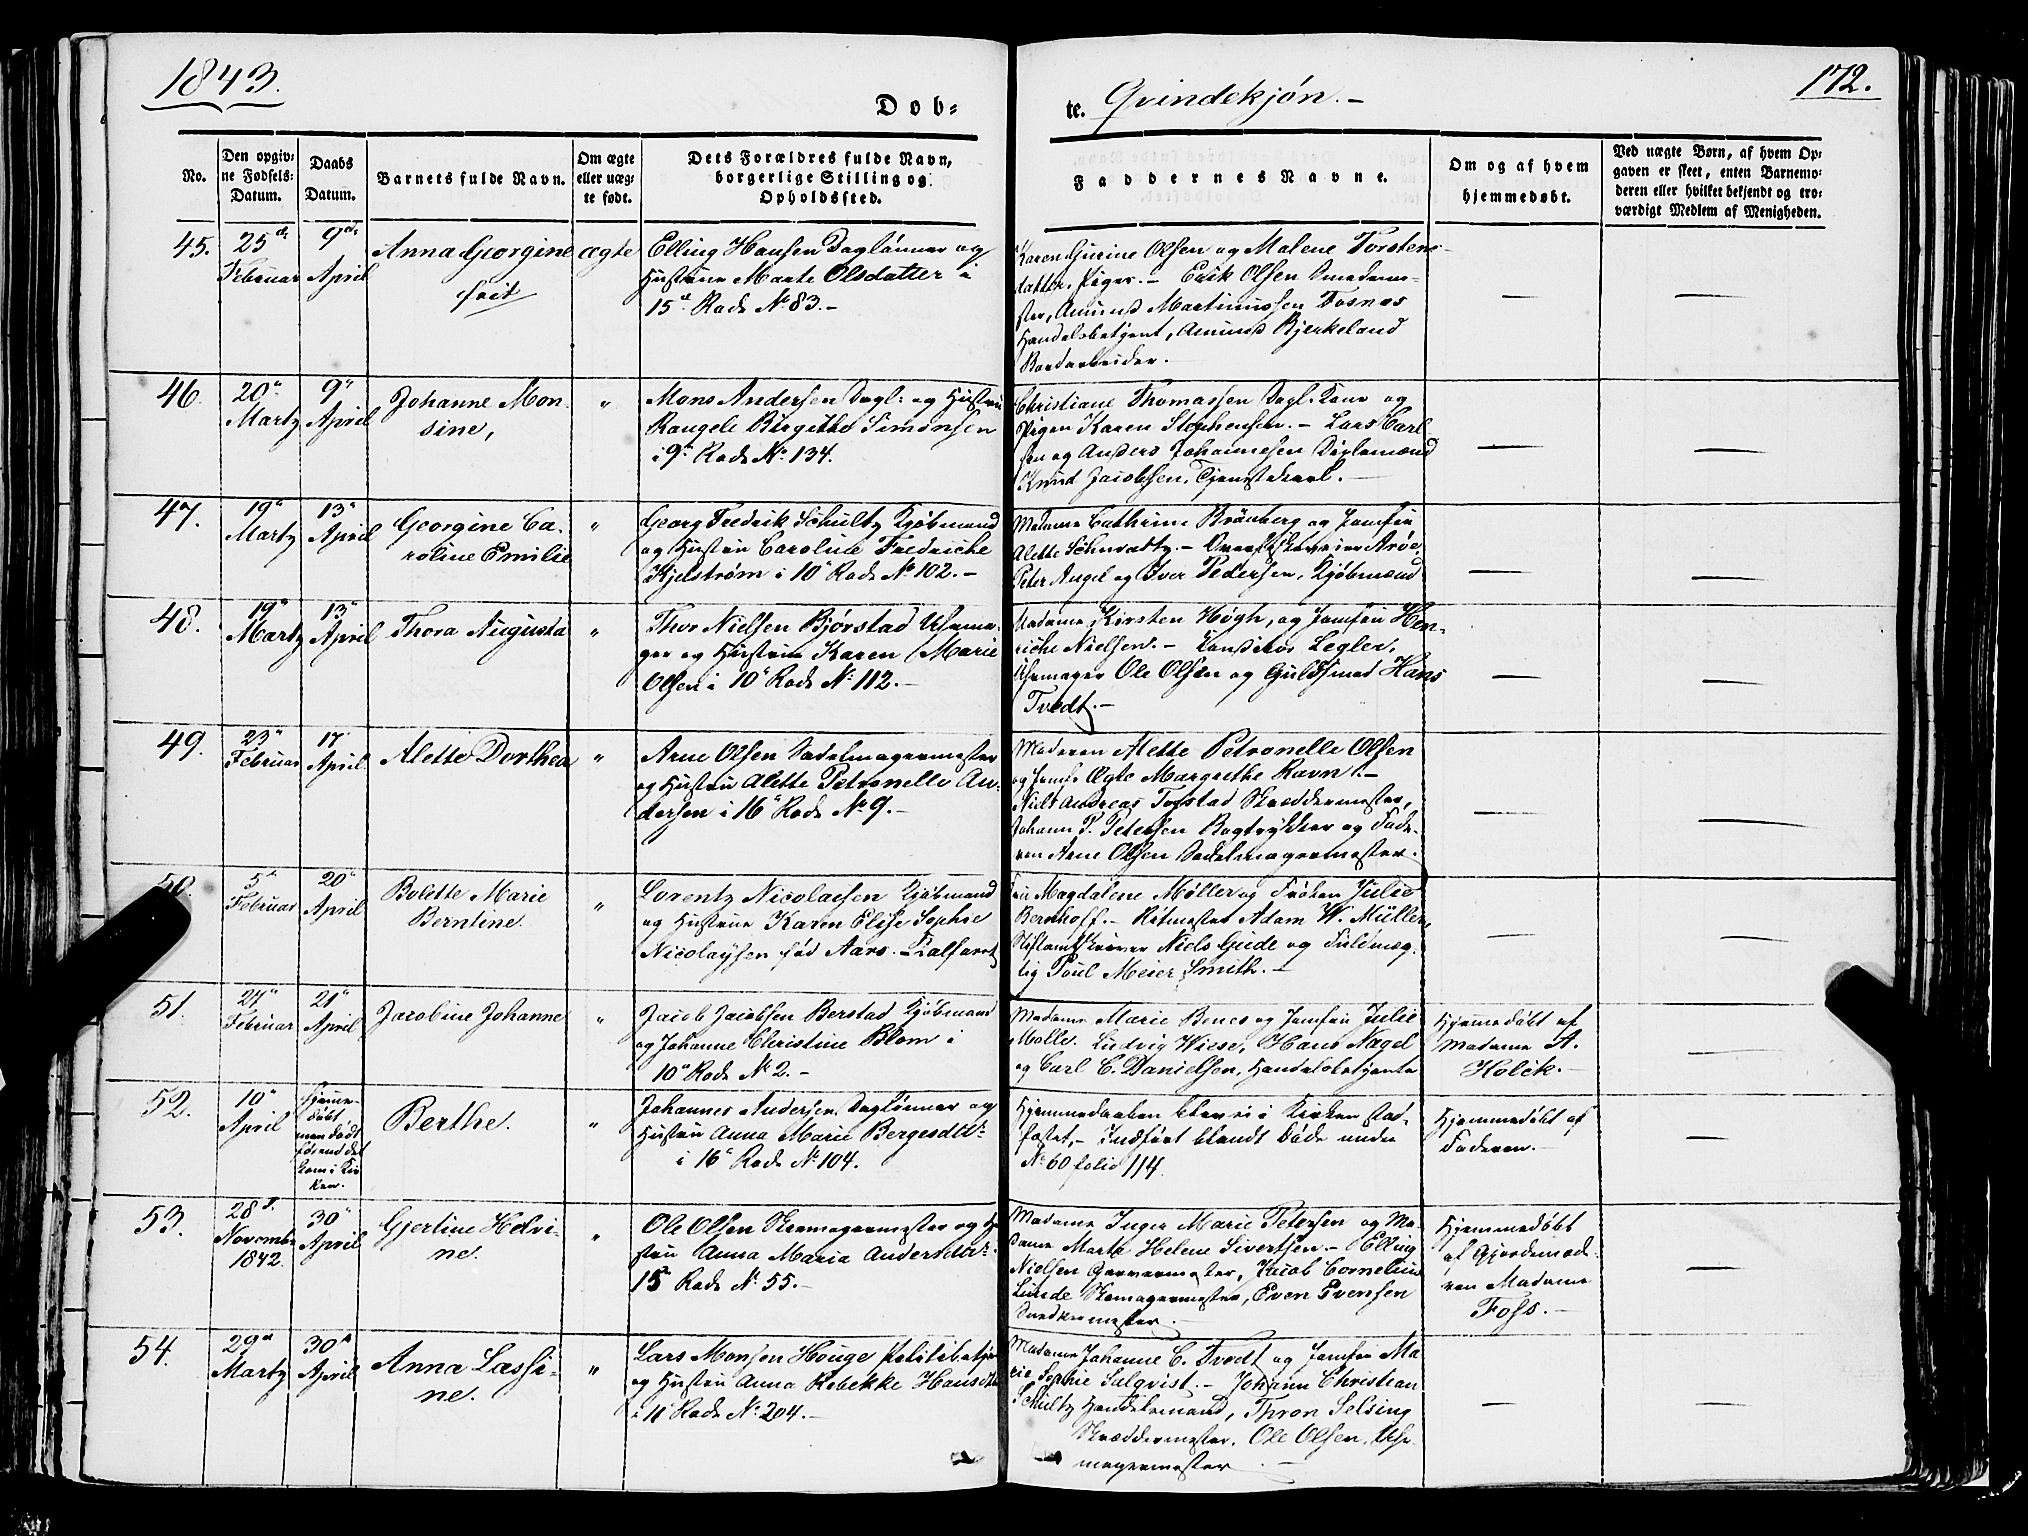 1843.
172.
Døb=
te. Qvindekjøn.-
No.
Den opgiv=
ne Fødsels=
Datum.
Daabs
Datum.
Barnets fulde Navn.
Om ægte
eller uæg=
te født.
Dets Forældres fulde Navn,
borgerlige Stilling og
Opholdssted.
Faddernes Navne.
Om og af hvem
hjemmedøbt.
Ved uægte Børn, af hvem Op=
gaven er skeet, enten Barnemo=
deren eller hvilket bekjendt og tro=
værdigt Medlem af Menigheden.
45.
25de
Februar
9de
April
Anna Georgine
ægte
Elling Hansen Daglønner og
Hustrue Marte Olsdatter i
15de Rode No 83.-
Karen Gurine Olsen og Malene Torstens
datter, Piger.- Erik Olsen Smedeme-
ster, Amund Martinussen Fosnes
Handelsbetjent, Amund Bjerkeland
Bordarbeider.
—
—
46.
20de
Marty
9de
April
Johanne Mon-
sine,
"
Mons Andersen Dagl: og Hustru
Rangele Birgitte Simonsen
i 9de Rode No 134.
Christiane Thomassen Dagl. Kone og
Pigen Karen Stephensen.- Lars Carl-
sen og Anders Johannesen Daglømænd
Knud Jacobsen, Tjenestekarl.-
—
—
47.
19de
Marty
13de
April
Georgine Ca-
roline Emilie
"
Georg Fredrik Schultz Kjøbmand
og Hustru Caroline Fredriche
Kjelstrøm i 10de Rode No 102.-
Madame Cathrine Brønberg og Jomfru
Alette Schwartz.-
Peter Angel og Iver Pedersen, Kjøbmænd
—
—
48.
19de
Marty
13de
April
Thora Augusta
"
Thor Nielsen Bjørstad Uhrma-
ger og Hustrue Karen Marie
Olsen i 10de Rode No 112.-
Madame Kirsten Høgh, og Jomfru Hen-
riche Nielsen.- Legler,
Uhrmager Ole Olsen og Guldsmed Hans
Tvedt.-
—
—
49.
23de
Februar
17
April
Alette Dorthea
"
Arne Olsen Sadelmagermester
og Hustru Alette Petronelle An-
dersen i 16de Rode No 9.-
Moderen Alette Petronelle Olsen
og Jomfr Ægte Margrethe Ravn.-
Nils Andreas Torstad Skræddermester,
Johann P. Petersen Bogtrykker og Fade-
ren Arne Olsen Sadelmagermester.
—
—
50.
5te
Februar
20de
April
Bolette Marie
Berntine.
"
Lorentz Nicolaisen Kjøbmand
og Hustrue Karen Elise Sophie
Nicolaysen fød Aars.- Kalfaret
Fru Magdalene Møller og Frøken Julie
Bernhoff.- Ritmester Adam W. Müller,
Stiftamtskriver Niels Gude og Fuldmæg-
tig Poul Meier Smith.-
—
—
51.
24de
Februar
21de
April
Jacobine Johanne
"
Jacob Jacobsen Berstad Kjøbmand
og Johanne Christine Blom i
10de Rode No 2.-
Madame Marie Benes og Jomfru Julie
Molle. Ludvig Wiese, Hans Nagel
og Carl C. Danielsen, Handelsbetjente
Hjemmedøbt af
Madame A.
Holck.-
—
52.
10de
April
Hjemme-
døbt,
men dødt
førend det
kom i Kir
ken.
Berthe.
"
Johannes Andersen Dagløнner og
Hustru Anna Marie Bergesdtr
i 16de Rode No 104.
Hjemmedaaben blev ei i Kirken stad-
fæstet.- Indført blandt døde under
No 60 folio 114.
Hjemmedøbt af
Faderen.-
—
53.
28de
Novembr
1842.
30de
April
Gjertine Helvi-
ne.
"
Ole Olsen Skomagermester og Hu
stru Anna Maria Andersdtr.
15de Rode No 55.-
Madame Inger Marie Petersen og Ma-
dame Marte Helene Sivertsen.- Elling
Nielsen Garvermester, Jacob Cornelius
Lunde Skomagermester, Even Evensen
Snedkermester.
Hjemmedøbt
af Gjordemod-
ren Madame
Foss.-
—
54.
29de
Marty
30de
April
Anna Lassi-
ne.
"
Lars Monsen Houge Politibetjen
og Hustru Anna Rebekke Hansdtr
i 11de Rode No 204.-
Madame Johanne C. Tvedt og Jomfru Ma
rie Sophie Salqvist.- Johann Christian
Schultz Handelsmand, Thron Selsing
Skræddermester, Ole Olsen, Uhr
magermester
—
—